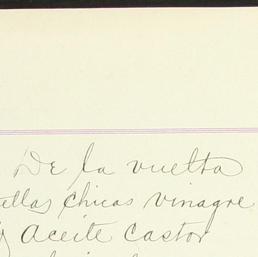 De la vuelta
ellas chicas vinagre
aceite castor